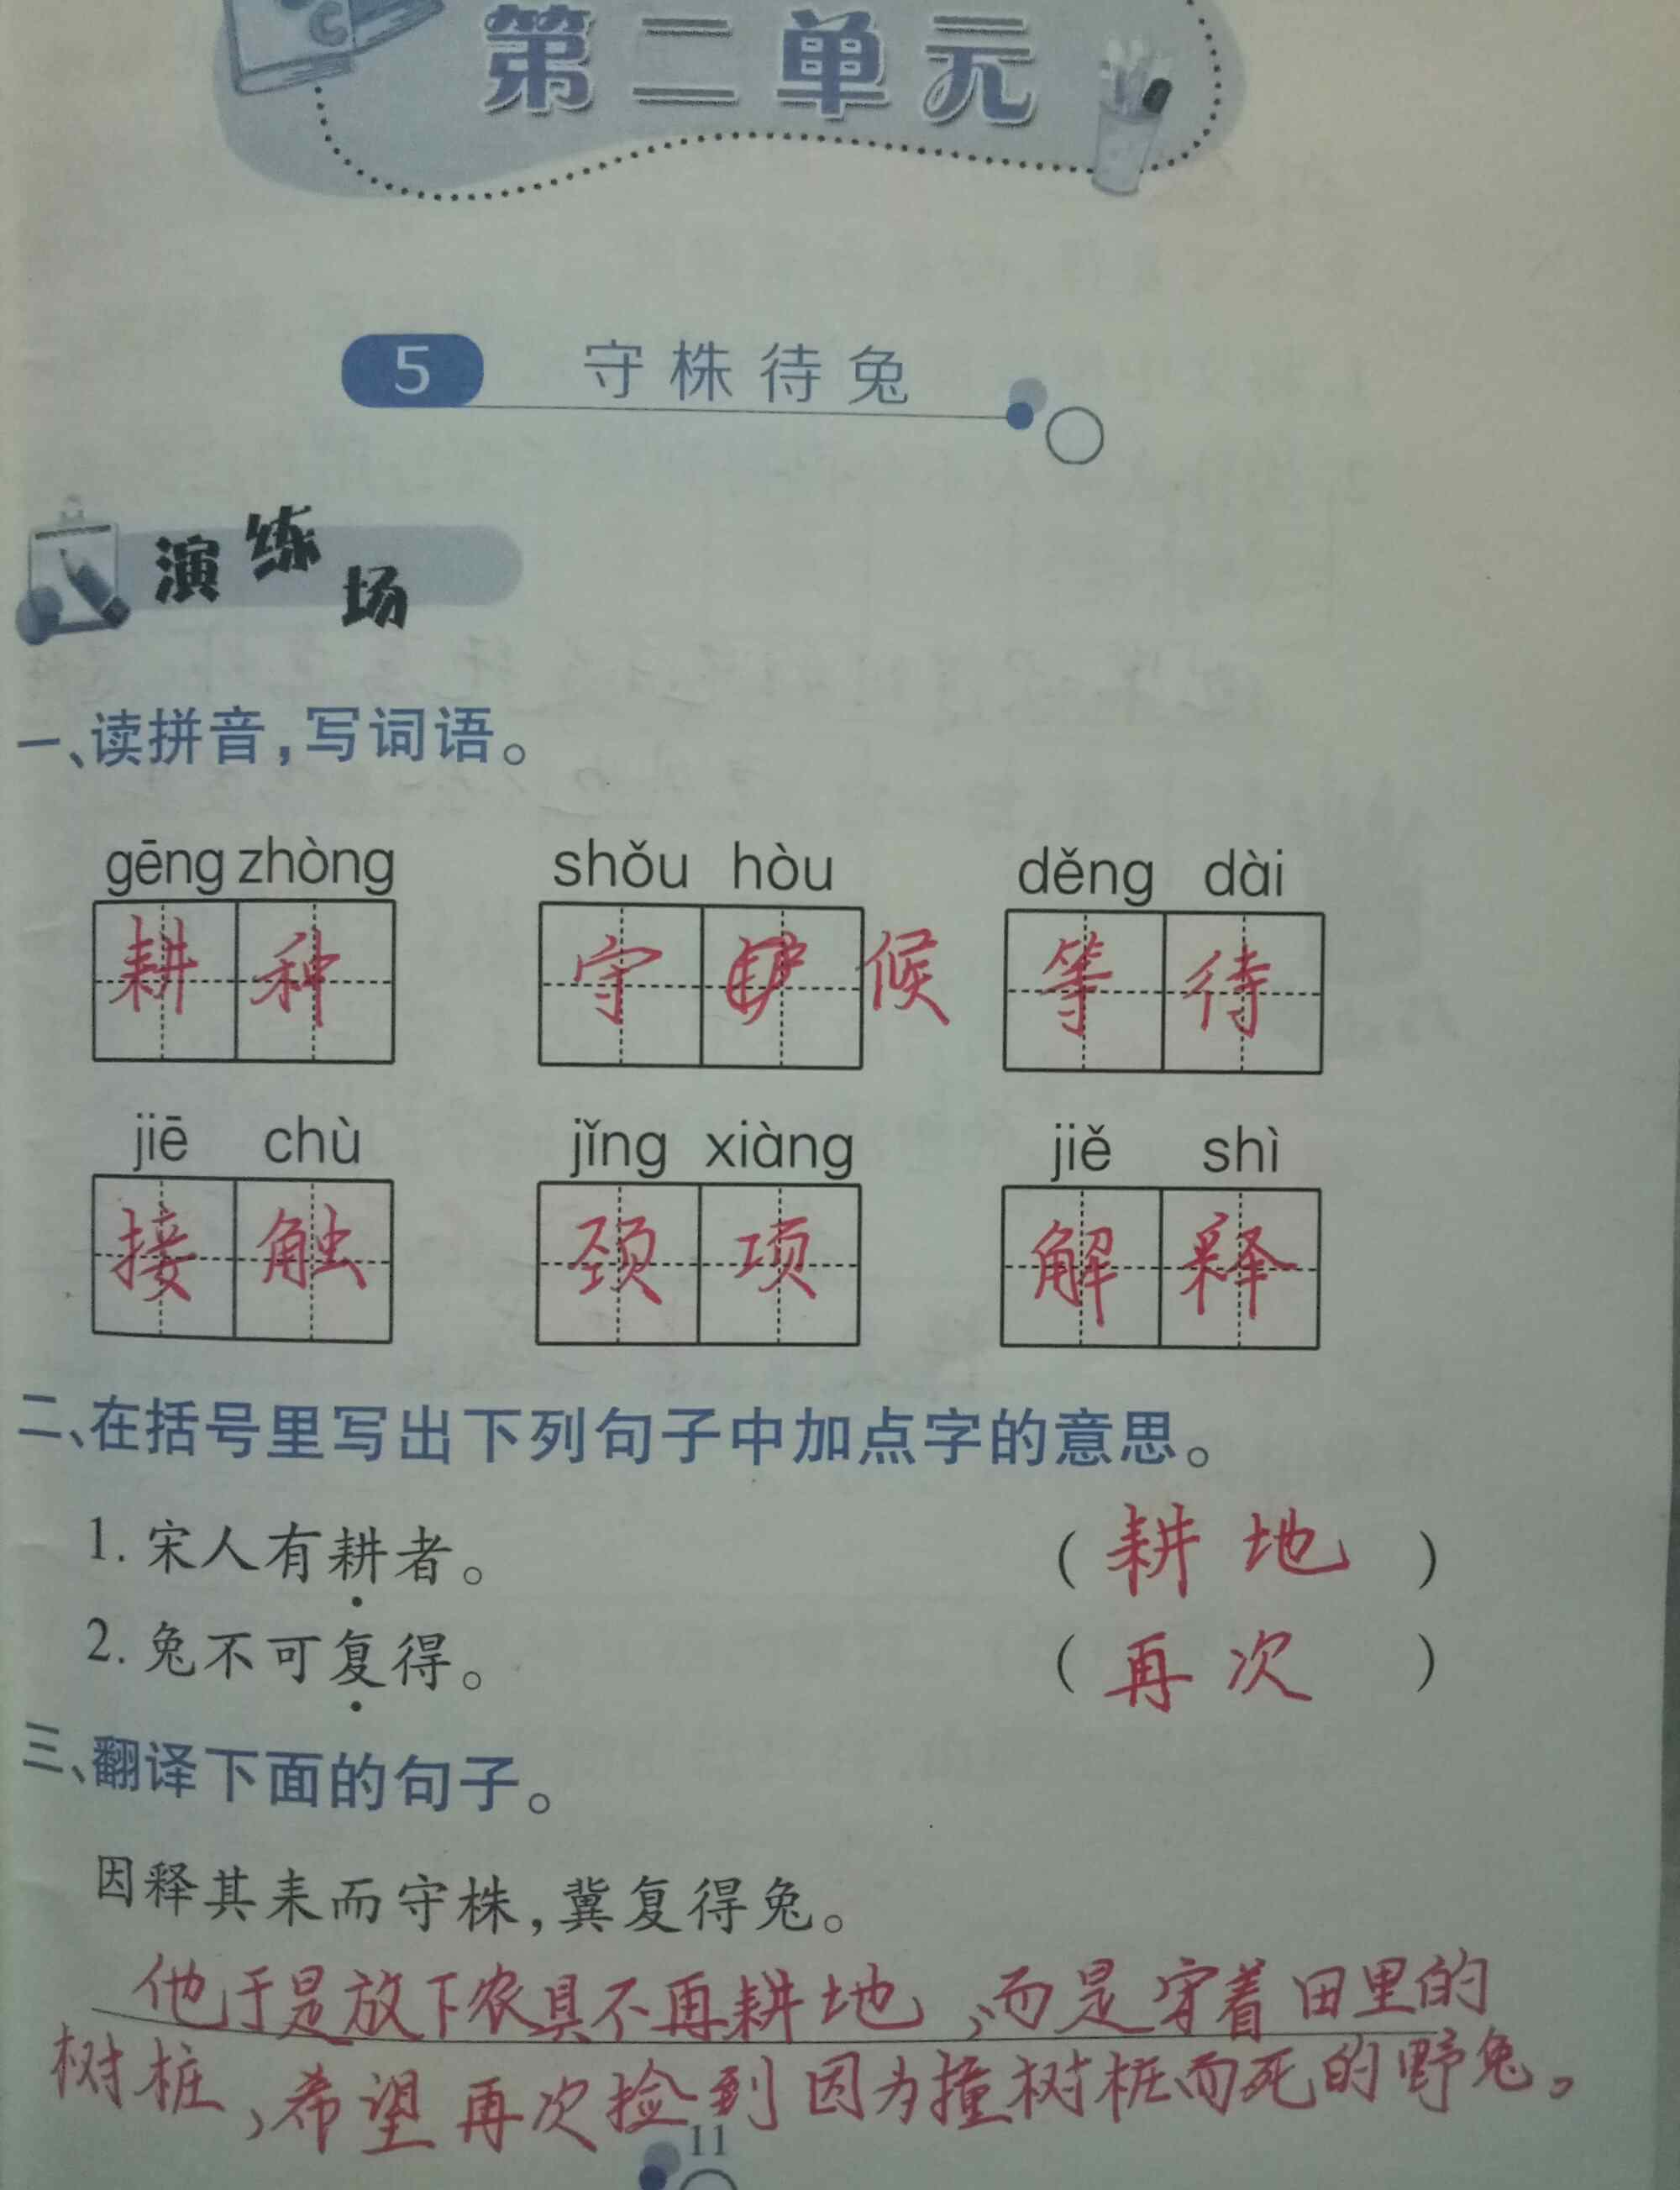 第二单元
5 守株待兔
演练场
一、读拼音,写词语。
gēng zhòng shǒu hòu děng dài
耕种 守 候 等待
jiē chù jǐng xiàng jiě shì
接触 颈项 解释
二、在括号里写出下列句子中加点字的意思。
1. 宋人有耕者。 ( 耕地 )
2. 兔不可复得。 ( 再次 )
三、翻译下面的句子。
因释其耒而守株,冀复得兔。
他于是放下农具不再耕地,而是守着田里的
树桩,希望再次捡到因为撞树桩而死的野兔。
11